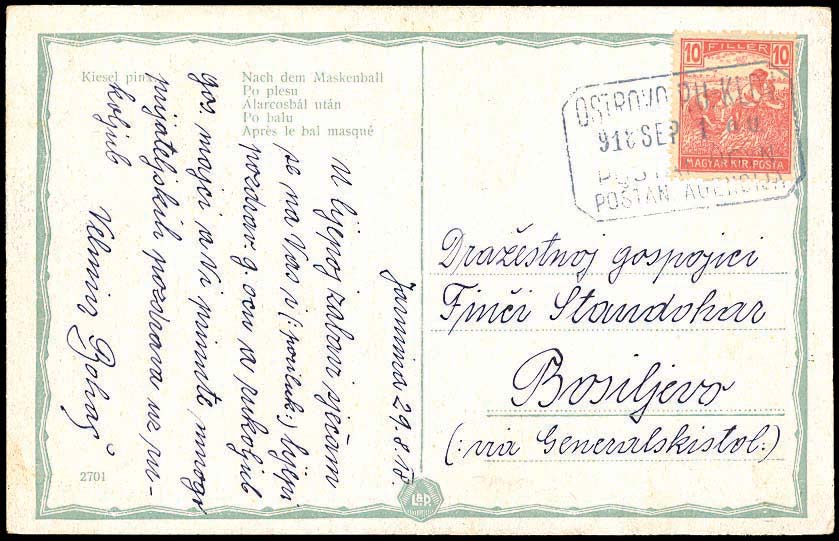 Kiesel pinx
Nach dem Maskenball
Po plesu
Álarcosbál után
Po balu
Après le bal masqué
Jarmina 29.8.18.
U lijenoj zabavi sjećam
se na Vas i (:poiluk:) lijepi
pozdrav g. ocu a rukoljub
gos. majci a Vi primite mnogo
prijateljskih pozdrava uz ru-
koljub
Velimir
2701
LEP
10 FILLÉR 10
MAGYAR KIR. POSTA
OSTROVO
918 SEP 1
POŠTAN. AGENCIJA
Dražestnoj gospojici
Finči Standohar
Bosiljevo
(:via Generalskistol:)